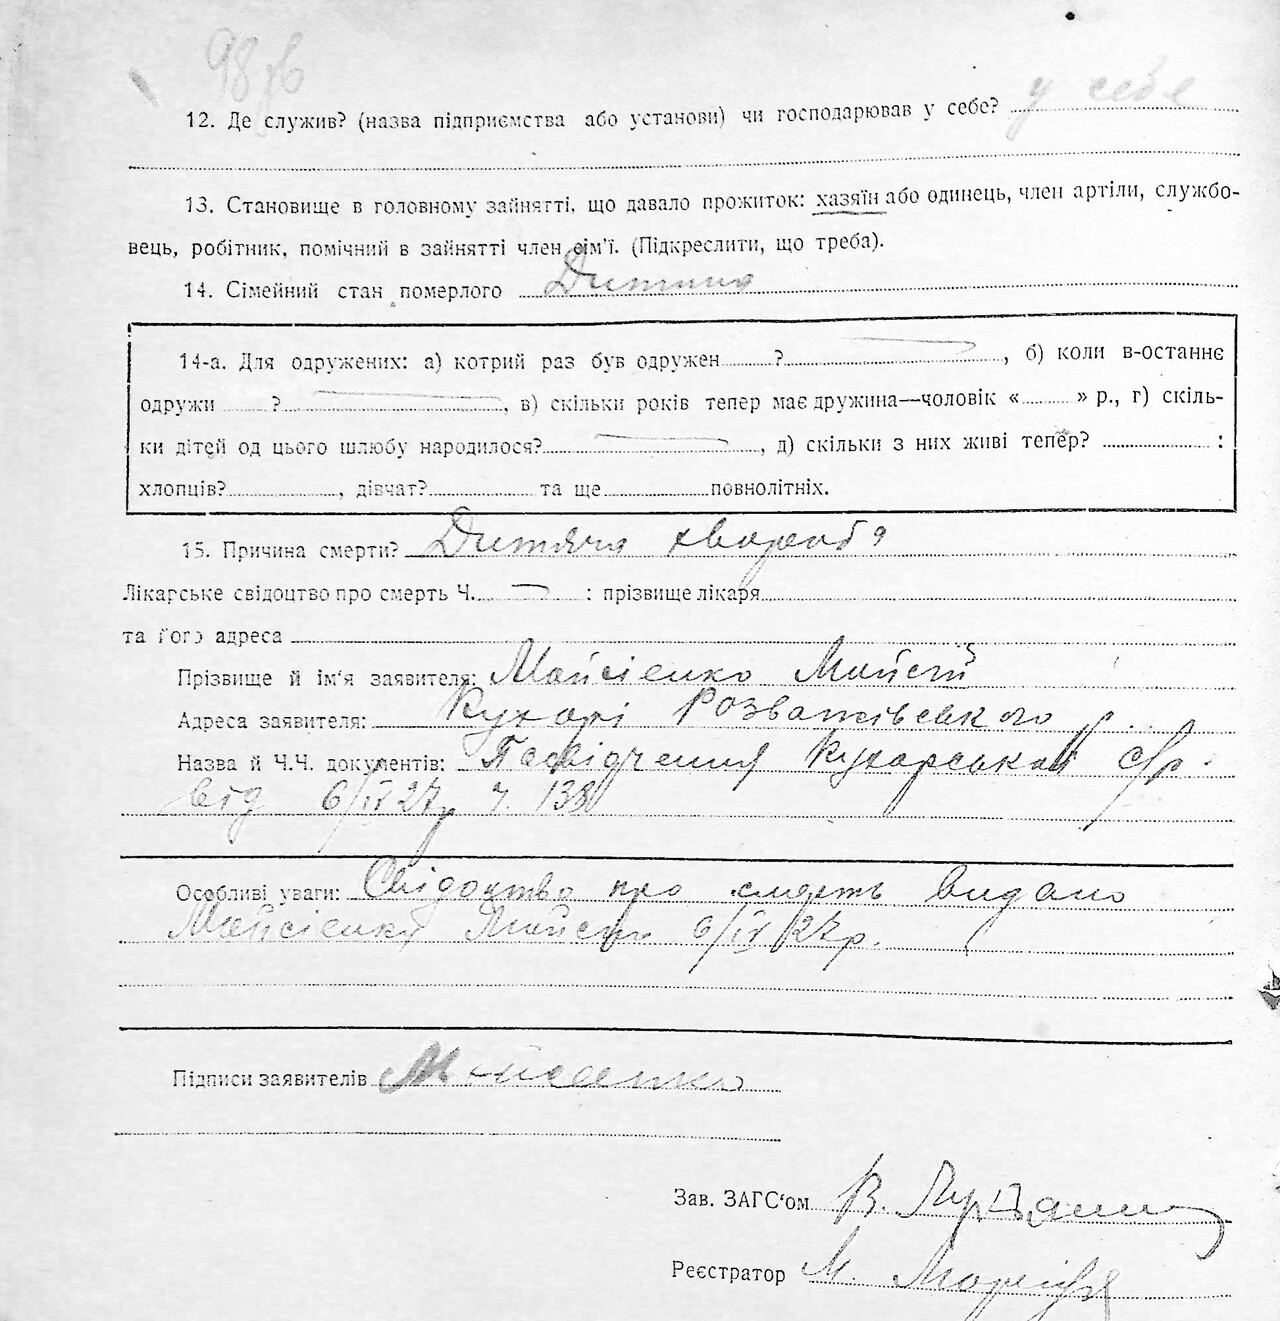 98 зв
12. Де служив? (назва підприємства або установи) чи господарював у себе? у себе
13. Становище в головному зайнятті, що давало прожиток: хазяїн або одинець, член артіли, службо-
вець, робітник, помічний в зайнятті член сім'ї. (Підкреслити, що треба).
14. Сімейний стан померлого Дитина
14-а. Для одружених: а) котрий раз був одружен ? , б) коли в-останнє
одружи ? , в) скільки років тепер має дружина—чоловік « » р., г) скіль-
ки дітей од цього шлюбу народилося? , д) скільки з них живі тепер? :
хлопців? , дівчат? та ще повнолітніх.
15. Причина смерти? Дитяча хвороба
Лікарське свідоцтво про смерть Ч. : прізвище лікаря
та його адреса
Прізвище й ім'я заявителя: Мойсієнко Мойсей
Адреса заявителя: Кухарі Розважівського р.
Назва й Ч.Ч. документів: Посвідчення Кухарської с/р.
від 6/IV 27р ч. 138
Особливі уваги: Свідоцтво про смерть видано
Мойсієнку Мойсею 6/IV 27р.
Підписи заявителів Мойсеенко
Зав. ЗАГС'ом В.
Реєстратор М.